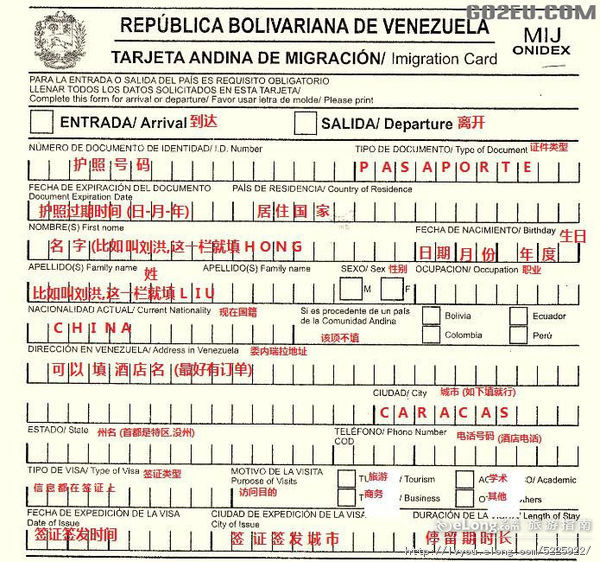 GO2EU.COM
REPÚBLICA BOLIVARIANA DE VENEZUELA
MIJ
ONIDEX
TARJETA ANDINA DE MIGRACIÓN/ Imigration Card
PARA LA ENTRADA O SALIDA DEL PAÍS ES REQUISITO OBLIGATORIO
LLENAR TODOS LOS DATOS SOLICITADOS EN ESTA TARJETA/
Complete this form for arrival or departure/ Favor usar letra de molde/ Please print
ENTRADA/ Arrival 到达 SALIDA/ Departure 离开
NÚMERO DE DOCUMENTO DE IDENTIDAD/ I.D. Number TIPO DE DOCUMENTO/ Type of Document 证件类型
护照号码 PASAPORTE
FECHA DE EXPIRACIÓN DEL DOCUMENTO PAÍS DE RESIDENCIA/ Country of Residence
Document Expiration Date
护照过期时间 (日-月-年) 居住国家
NOMBRE(S) First name FECHA DE NACIMIENTO/ Birthday 生日
名字(比如叫刘洪,这一栏就填HONG 日期月份 年度
APELLIDO(S) Family name 姓 APELLIDO(S) Family name SEXO/ Sex 性别 OCUPACION/ Occupation 职业
比如叫刘洪,这一栏就填LIU M F
NACIONALIDAD ACTUAL/ Current Nationality 现在国籍 Si es procedente de un país
de la Comunidad Andina Bolivia Ecuador
CHINA 该项不填 Colombia Perú
DIRECCIÓN EN VENEZUELA/ Address in Venezuela 委内瑞拉地址
可以填酒店名(最好有订单)
CIUDAD/ City 城市 (如下填就行)
CARACAS
ESTADO/ State 州名 (首都是特区,没州) TELÉFONO/ Phono Number 电话号码 (酒店电话)
COD
TIPO DE VISA/ Type of Visa 签证类型 MOTIVO DE LA VISITA
Purpose of Visits
信息都在签证上 访问目的
TU 旅游 / Tourism AC 学术 / Academic
T 商务 / Business O 其他 hers
FECHA DE EXPEDICIÓN DE LA VISA CIUDAD DE EXPEDICIÓN DE LA VISA DURACIÓN DE LA VISITA/ Length of Stay
Date of Issue City of Issue
签证签发时间 签证签发城市 停留期时长
eLong 旅游指南
http://lvyou.elong.com/5225922/